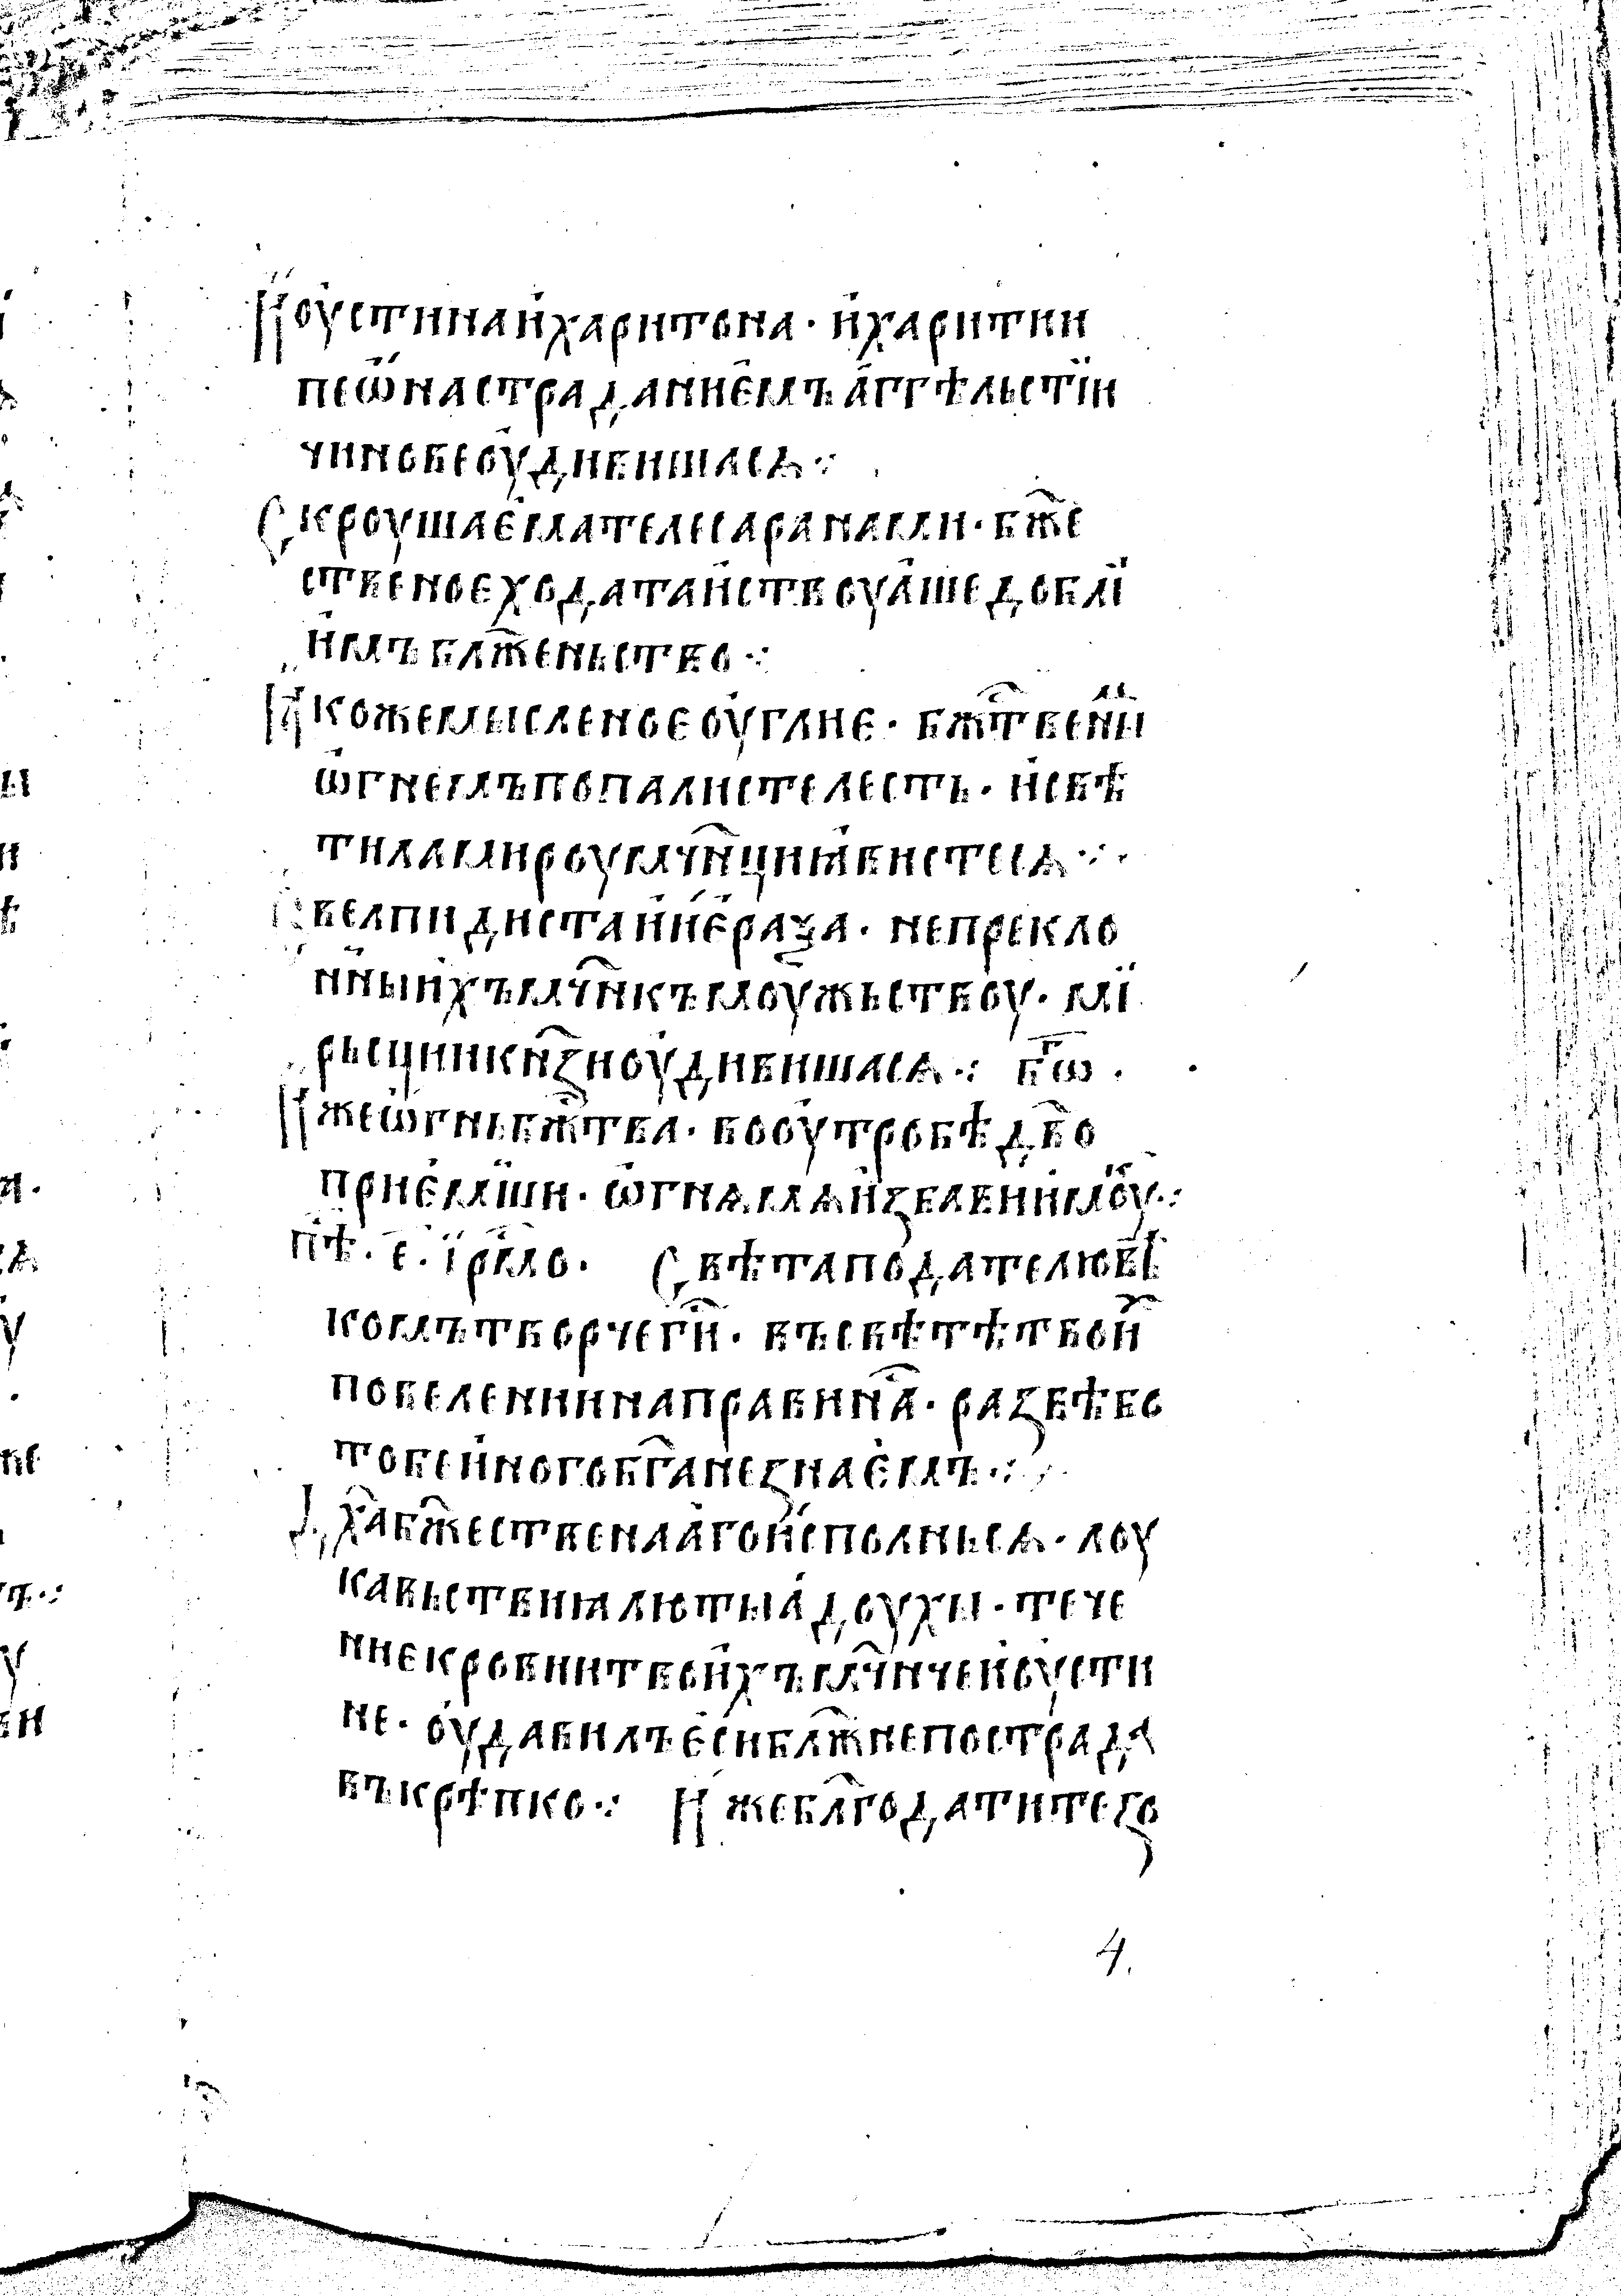 Иоустина и҆харитона · и҆харитии
пеѡ҆на страданиє҆мъ а҆ггѣльстїи
чинове оу҆дивишасѧ ⁘
Скроушає҆ма телеса ранами · бж҃е
ственоє ходатаи҆ствоуа҆ше доблї
и҆мъ блаж҃еньство ⁘
Ꙗкоже мысленоє оу҆глиє · бжт҃вены҆и
ѡ҆гнемъ попалисте лесть · и҆свѣ
тила мироу мчн҃ци ꙗ҆вистесѧ ⁘
Євелпидиста и҆ и҆є҆раѯа · непрекло
нны҆и҆хъ мчн҃къ моу҆жьствоу · мї
рьсции кнѧ҃зи оу҆дивишасѧ ⁘ бг҃ѡ ·
Иже ѡ҆гнь бжт҃ва · во оу҆тробѣ дв҃о
приє҆мши · ѡ҆гнѧ мѧ и҆збави и҆мо҆у ⁘
пѣ҃ · е · ї҆рмо · Свѣта подателю вѣ
комъ творче ги҃ · въ свѣтѣ твои҆
повелении направи на҃ · развѣ бо
тобе и҆ного бг҃а не знає҆мъ ⁘
Дх҃а бж҃ественаа҆го и҆сполньсѧ · лоу
кавьствиꙗ лютыа҆ доухы · тече
ниє кровии твои҆хъ мчн҃че и҆оу҆сти
не · оу҆давилъ є҆си блаж҃не пострада
въ крѣпко ⁘ Иже блг҃одати тезо
4.